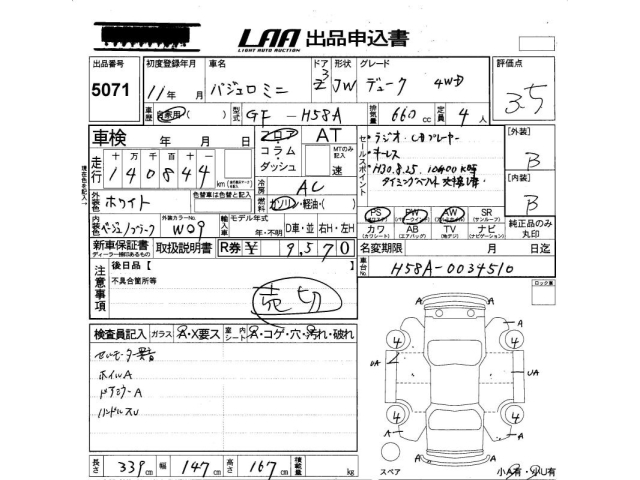 LAA 出品申込書
LIGHT AUTO AUCTION
出品番号 初度登録年月 車名 ドア 形状 グレード 評価点
5071 11年 月 パジェロミニ 3 JW デューク 4WD 3.5
車歴 自家用( ) 型式 GF-H58A 排気量 660cc 定員 4人
車検 年 月 日
走行 十万 万 千 百 十 一
140844 km
フロア コラム・ダッシュ AT MTのみ記入 速
セールスポイント
・ラジオ・CDプレーヤー
・キーレス
・H30.8.25. 10400K時
タイミングベルト交換済.
[外装] B
[内装] B
現在色を記入
外装色 ホワイト 色替車は色替と記入
冷房 AC
燃料 ガソリン・軽油・( )
内装色 ベージュ/ブラック 外装カラーNo. W09
輸入車 モデル年式 年・不明 D車・並 右H・左H
PS PW AW SR(サンルーフ)
カワ(カワシート) AB(エアバッグ) TV(地デジ) ナビ(ナビゲーション)
純正品のみ丸印
新車保証書 取扱説明書 R券 ¥ 9,570
ディーラー捺印のあるもの
名変期限 月 日迄
車台No. H58A-0034510
注意事項 後日品【 】
不具合箇所等
売切
ロック車
検査員記入 ガラス A・X要ス 室内シート A・コゲ・穴・汚れ・破れ
セルモーター異音
ホイルA
ドアミラーA
ハンドルスレ
A A
4 4
UA UA
4 4
A A
長さ 339cm 幅 147cm 高さ 167cm 積載量 kg
スペア 小A有・小U有